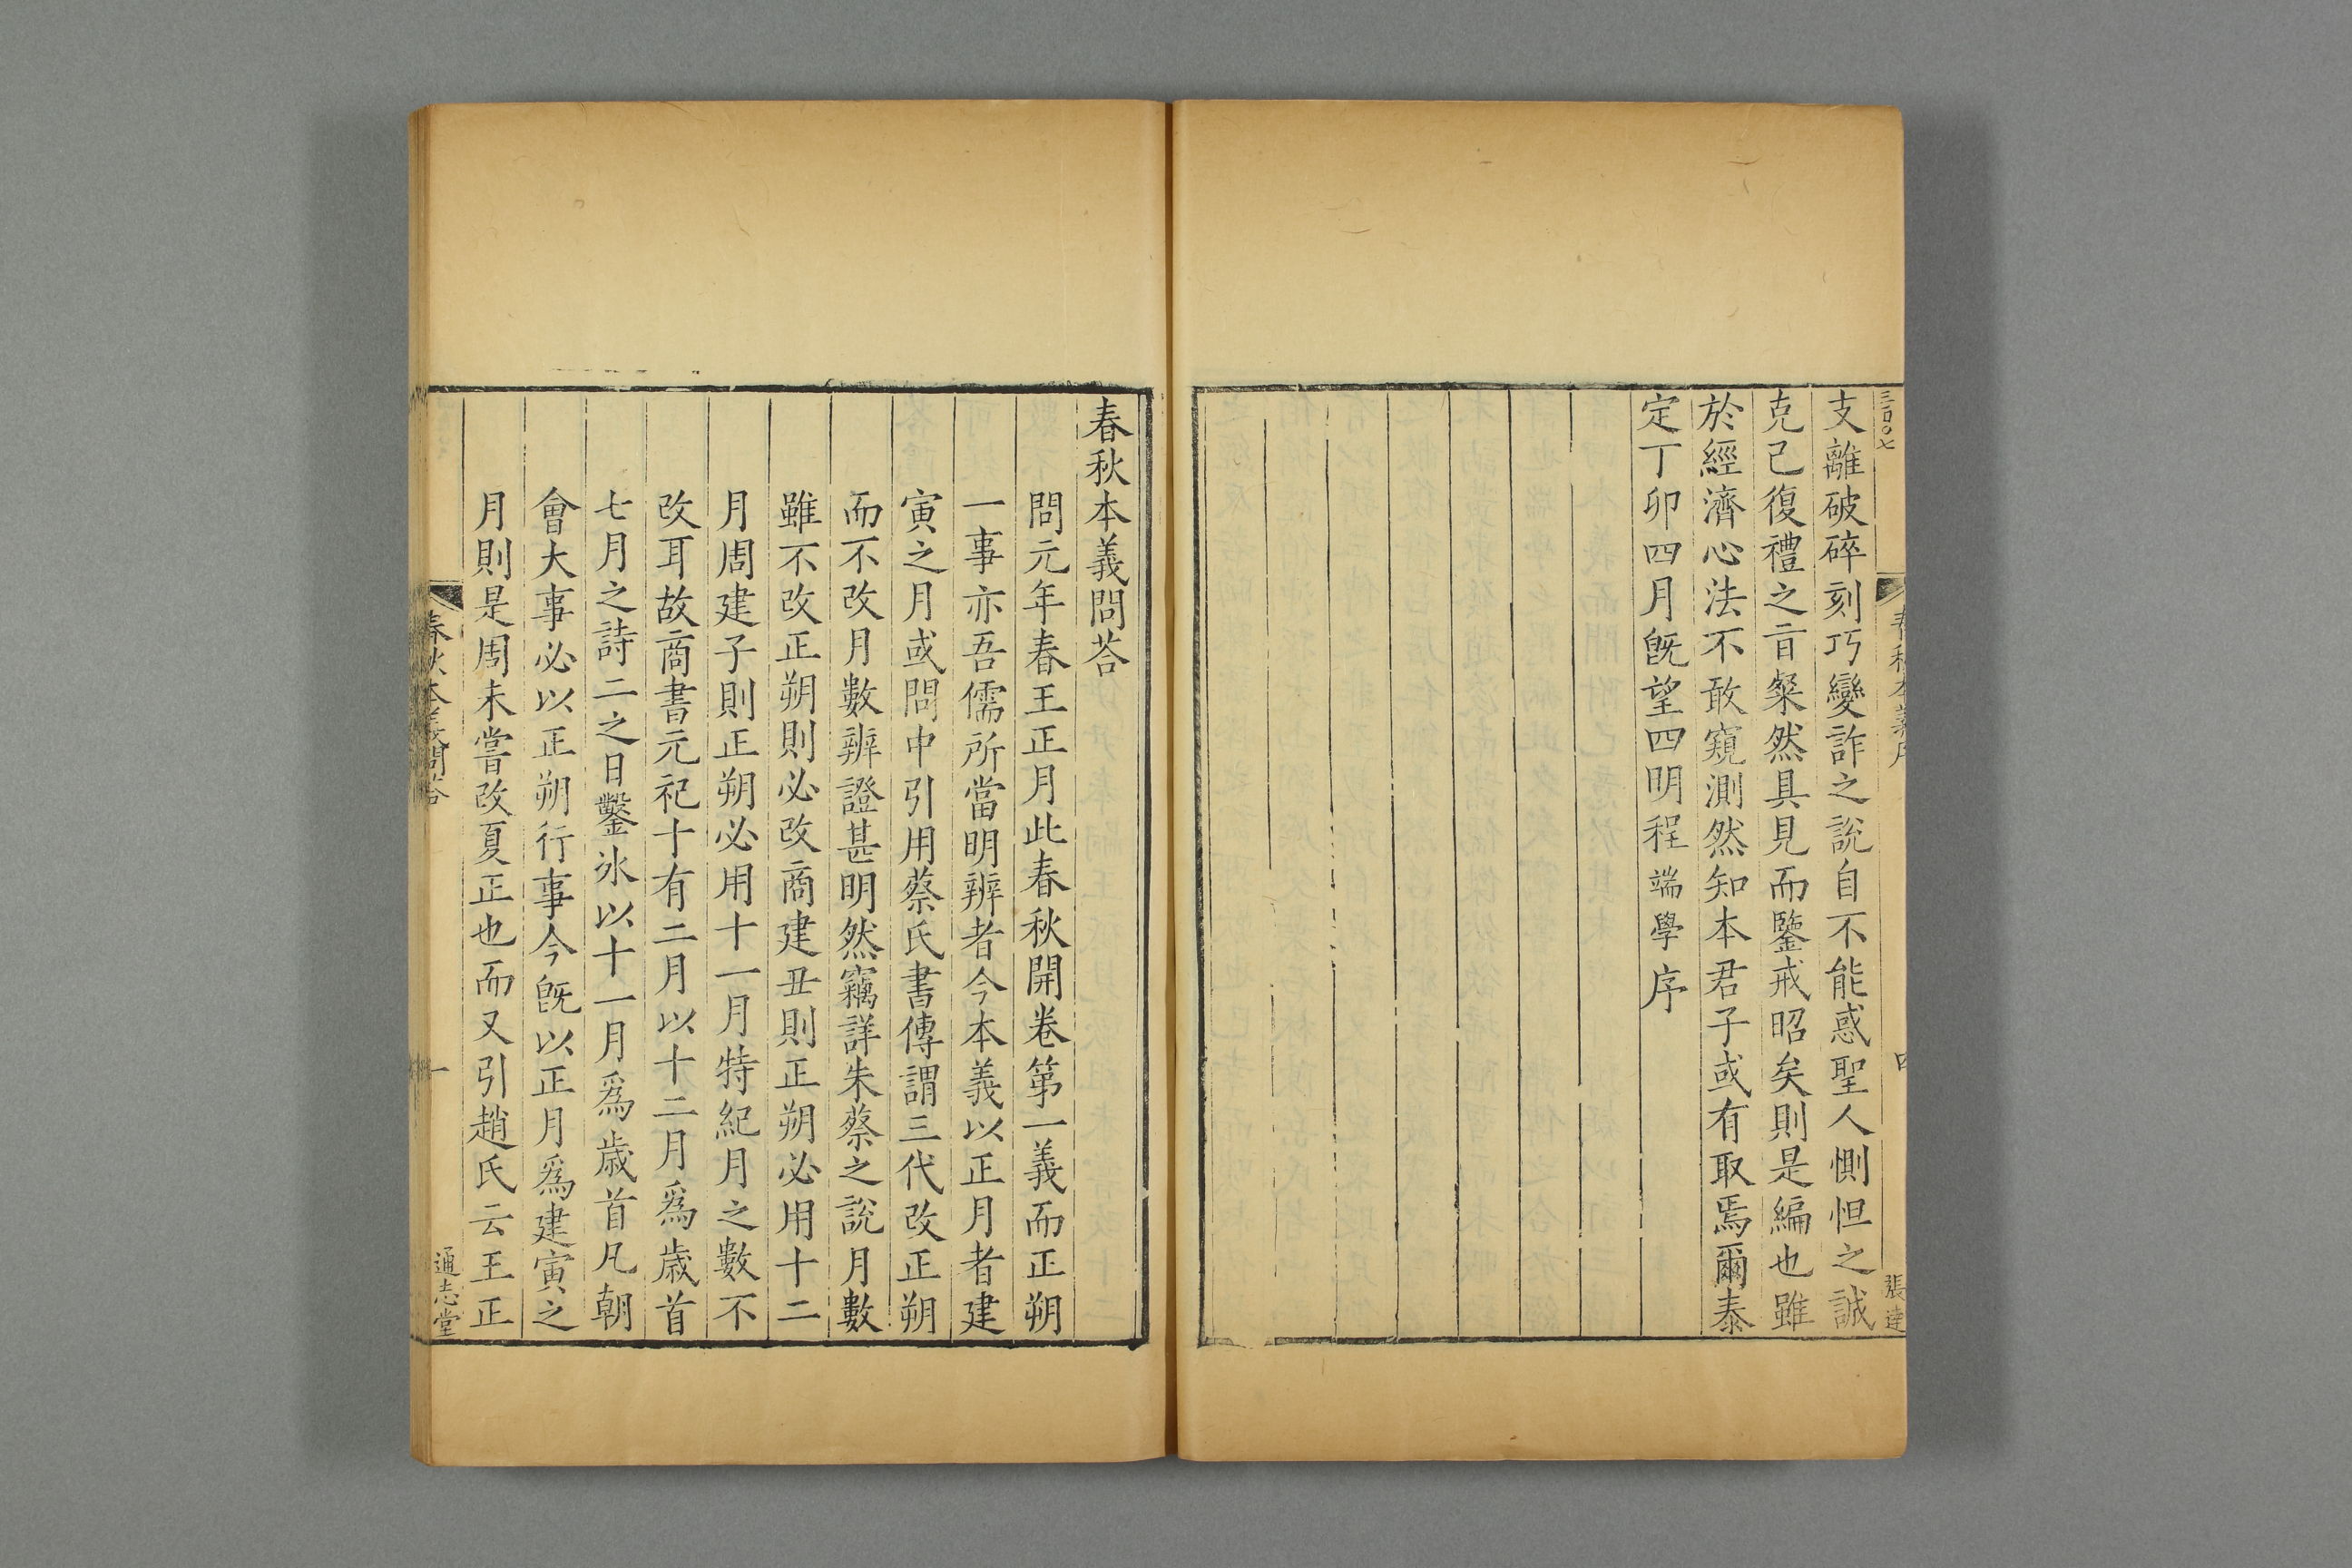 支離破碎刻巧變詐之說自不能惑聖人惻怛之誠
克己復禮之㫖粲然具見而鑒戒昭矣則是編也雖
於經濟心法不敢窺測然知本君子或有取焉爾泰
定丁卯四月旣望四明程端學序
春秋本義序
四
張達
春秋本義問荅
問元年春王正月此春秋開卷第一義而正朔
一事亦吾儒所當明辨者今本義以正月者建
寅之月或問中引用蔡氏書傳謂三代改正朔
而不改月數辨證甚明然竊詳朱蔡之說月數
雖不改正朔則必改商建丑則正朔必用十二
月周建子則正朔必用十一月特紀月之數不
改耳故商書元祀十有二月以十二月爲歲首
七月之詩二之日鑿冰以十一月爲歲首凡朝
會大事必以正朔行事今旣以正月爲建寅之
月則是周未嘗改夏正也而又引趙氏云王正
春秋本義問荅
一
通志堂